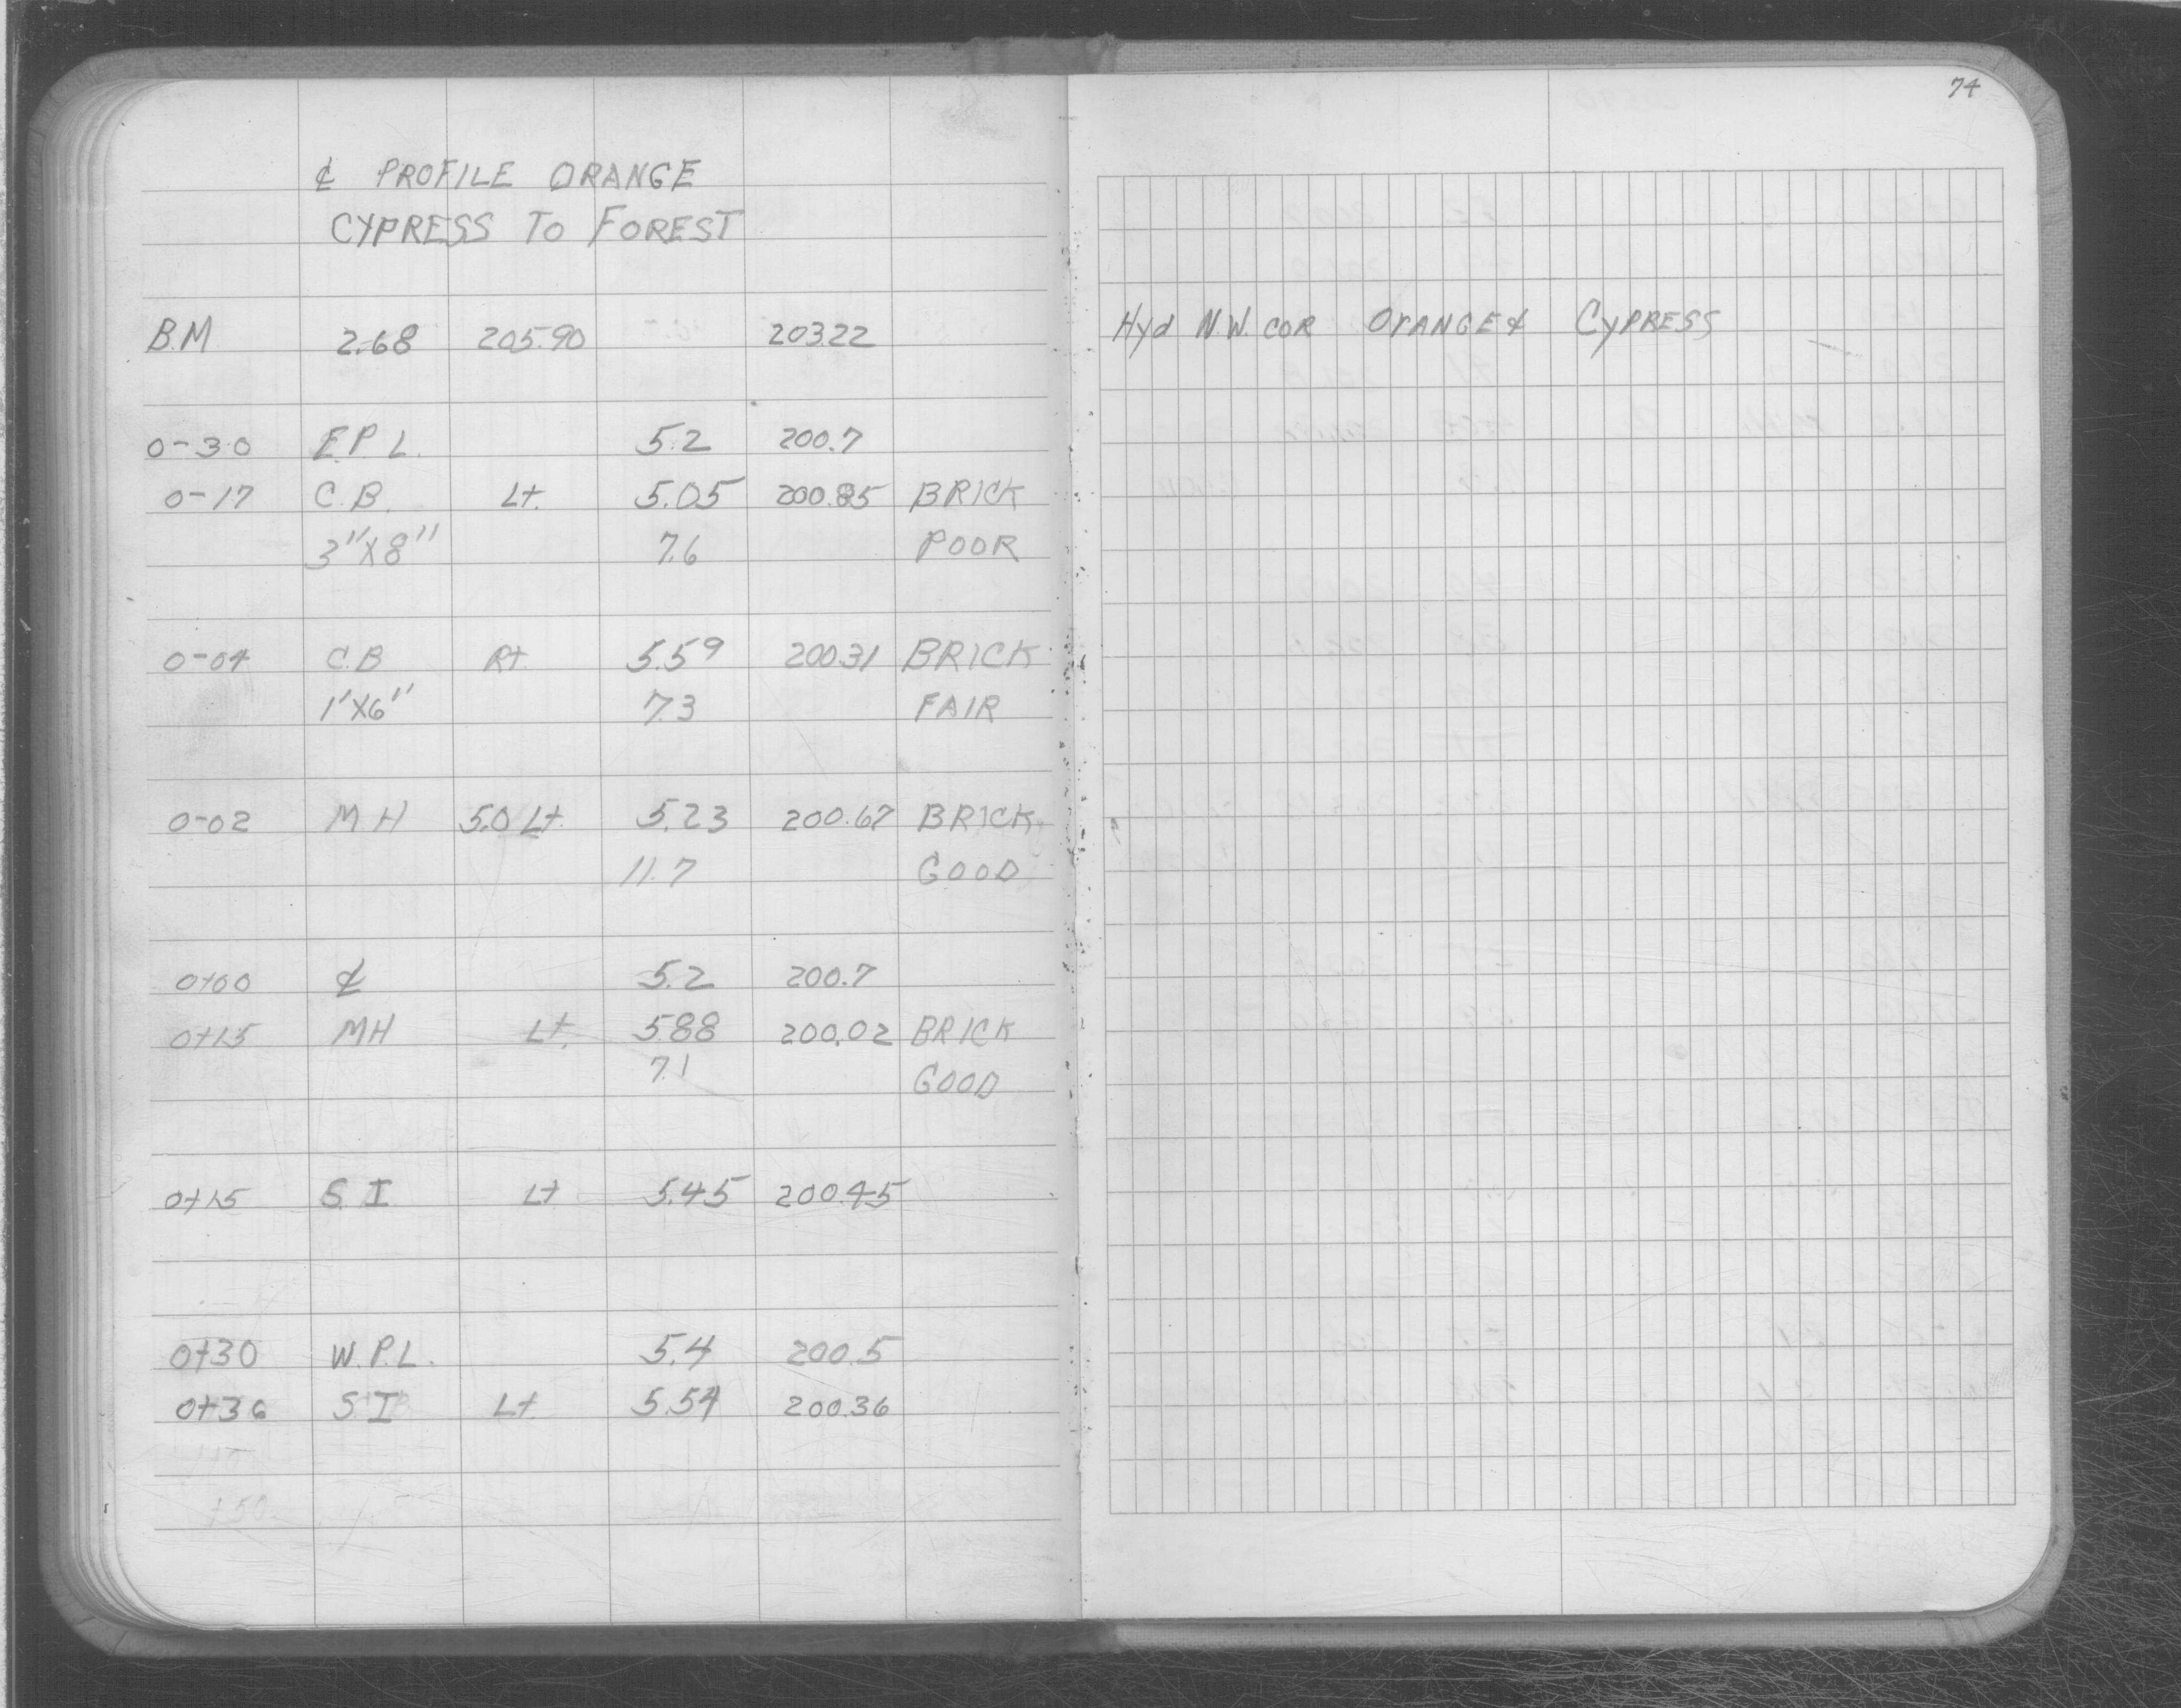 74
℄ PROFILE ORANGE
CYPRESS TO FOREST
B.M 2.68 205.90 203.22 Hyd N.W. COR ORANGE & CYPRESS
0-30 E.P.L. 5.2 200.7
0-17 C.B. Lt. 5.05 200.85 BRICK
3"X8" 7.6 POOR
0-04 C.B Rt. 5.59 200.31 BRICK
1'X6" 7.3 FAIR
0-02 MH 5.0 Lt. 5.23 200.67 BRICK
11.7 GOOD
0+00 ℄ 5.2 200.7
0+15 MH Lt. 5.88 200.02 BRICK
7.1 GOOD
0+15 S.I Lt 5.45 200.45
0+30 W.P.L. 5.4 200.5
0+36 S I Lt 5.54 200.36
+50